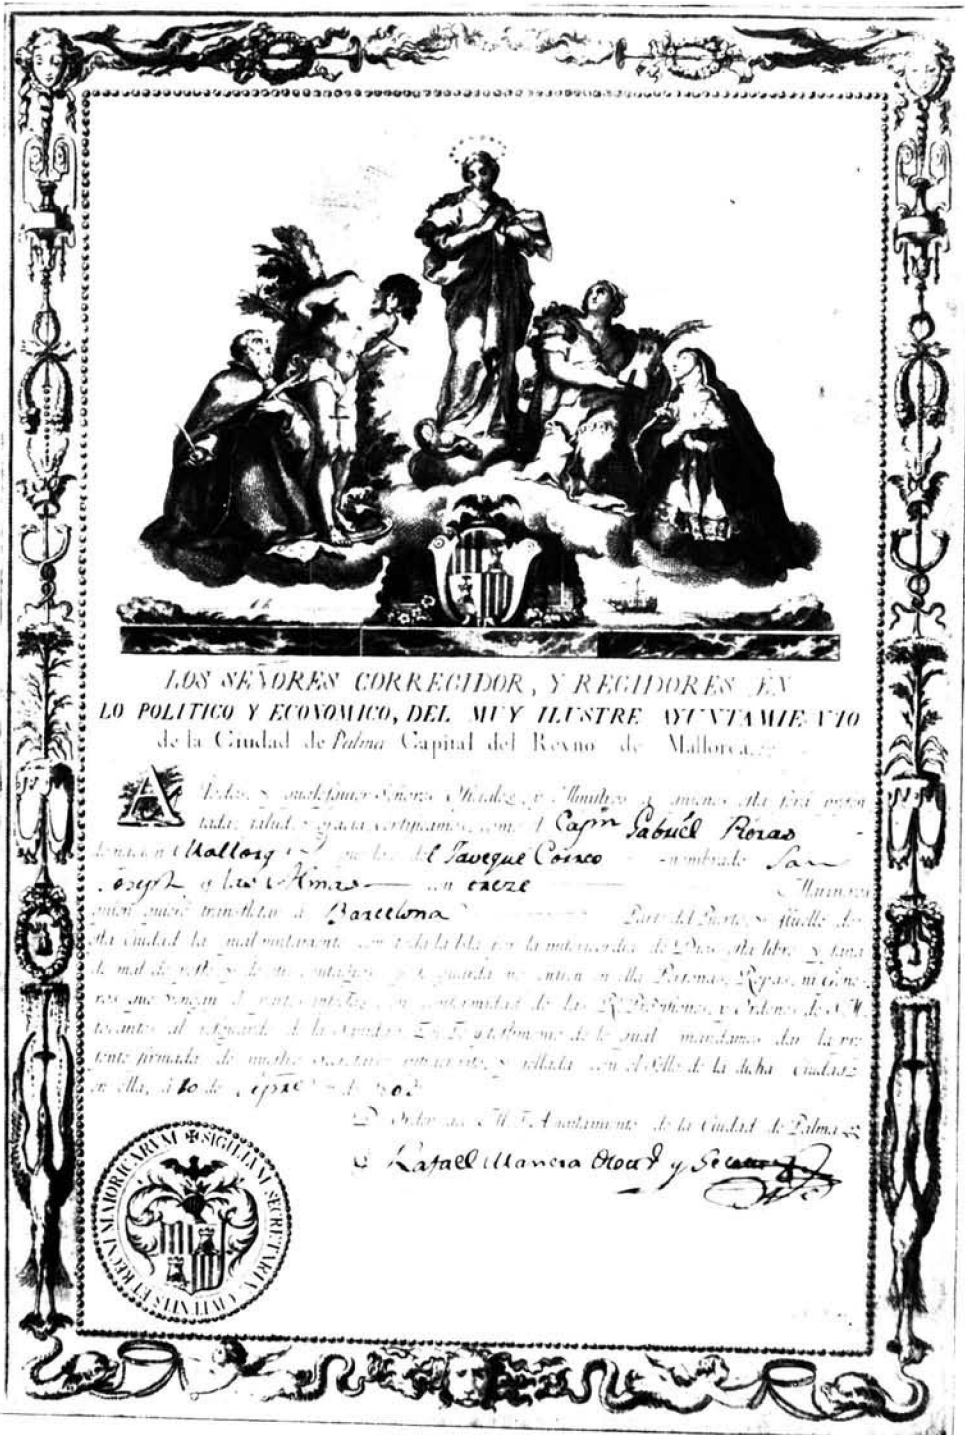 LOS SEÑORES CORREGIDOR, Y REGIDORES EN
LO POLITICO Y ECONOMICO, DEL MUY ILUSTRE AYUNTAMIENTO
de la Ciudad de Palma Capital del Reyno de Mallorca.
A Todos, y qualesquier Señores Oficiales, y Ministros a quienes esta será presen
tada, salud, y gracia certificamos, como el Capn Gabriél
de nacion Mallorqn del Javeque Correo nombrado San
Joseph y las Almas con treze Marineros
quien quiere transfletar á Barcelona Parte del Puerto, y Müelle de
esta Ciudad la qual juntamente con toda la Isla por la misericordia de Dios esta libre, y sana
de mal de peste, y de contagioso y se guarda no entren en ella Personas, Ropas, ni Gene-
ros que vengan de partes infectas, en conformidad de las Rs. y Ordenes de S.M.
tocantes al resguardo de la sanidad. En Fe y testimonio de lo qual mandamos dar la pre
sente firmada de nuestro Secretario infrascrito, y sellada con el Sello de la dicha Ciudad
en ella, á de de
D. Orden del M. I. Ayuntamiento de la Ciudad de Palma
Rafael Manera y
SIGILLUM SECRETARIÆ CIVITATIS ET REGNI MAIORICARUM